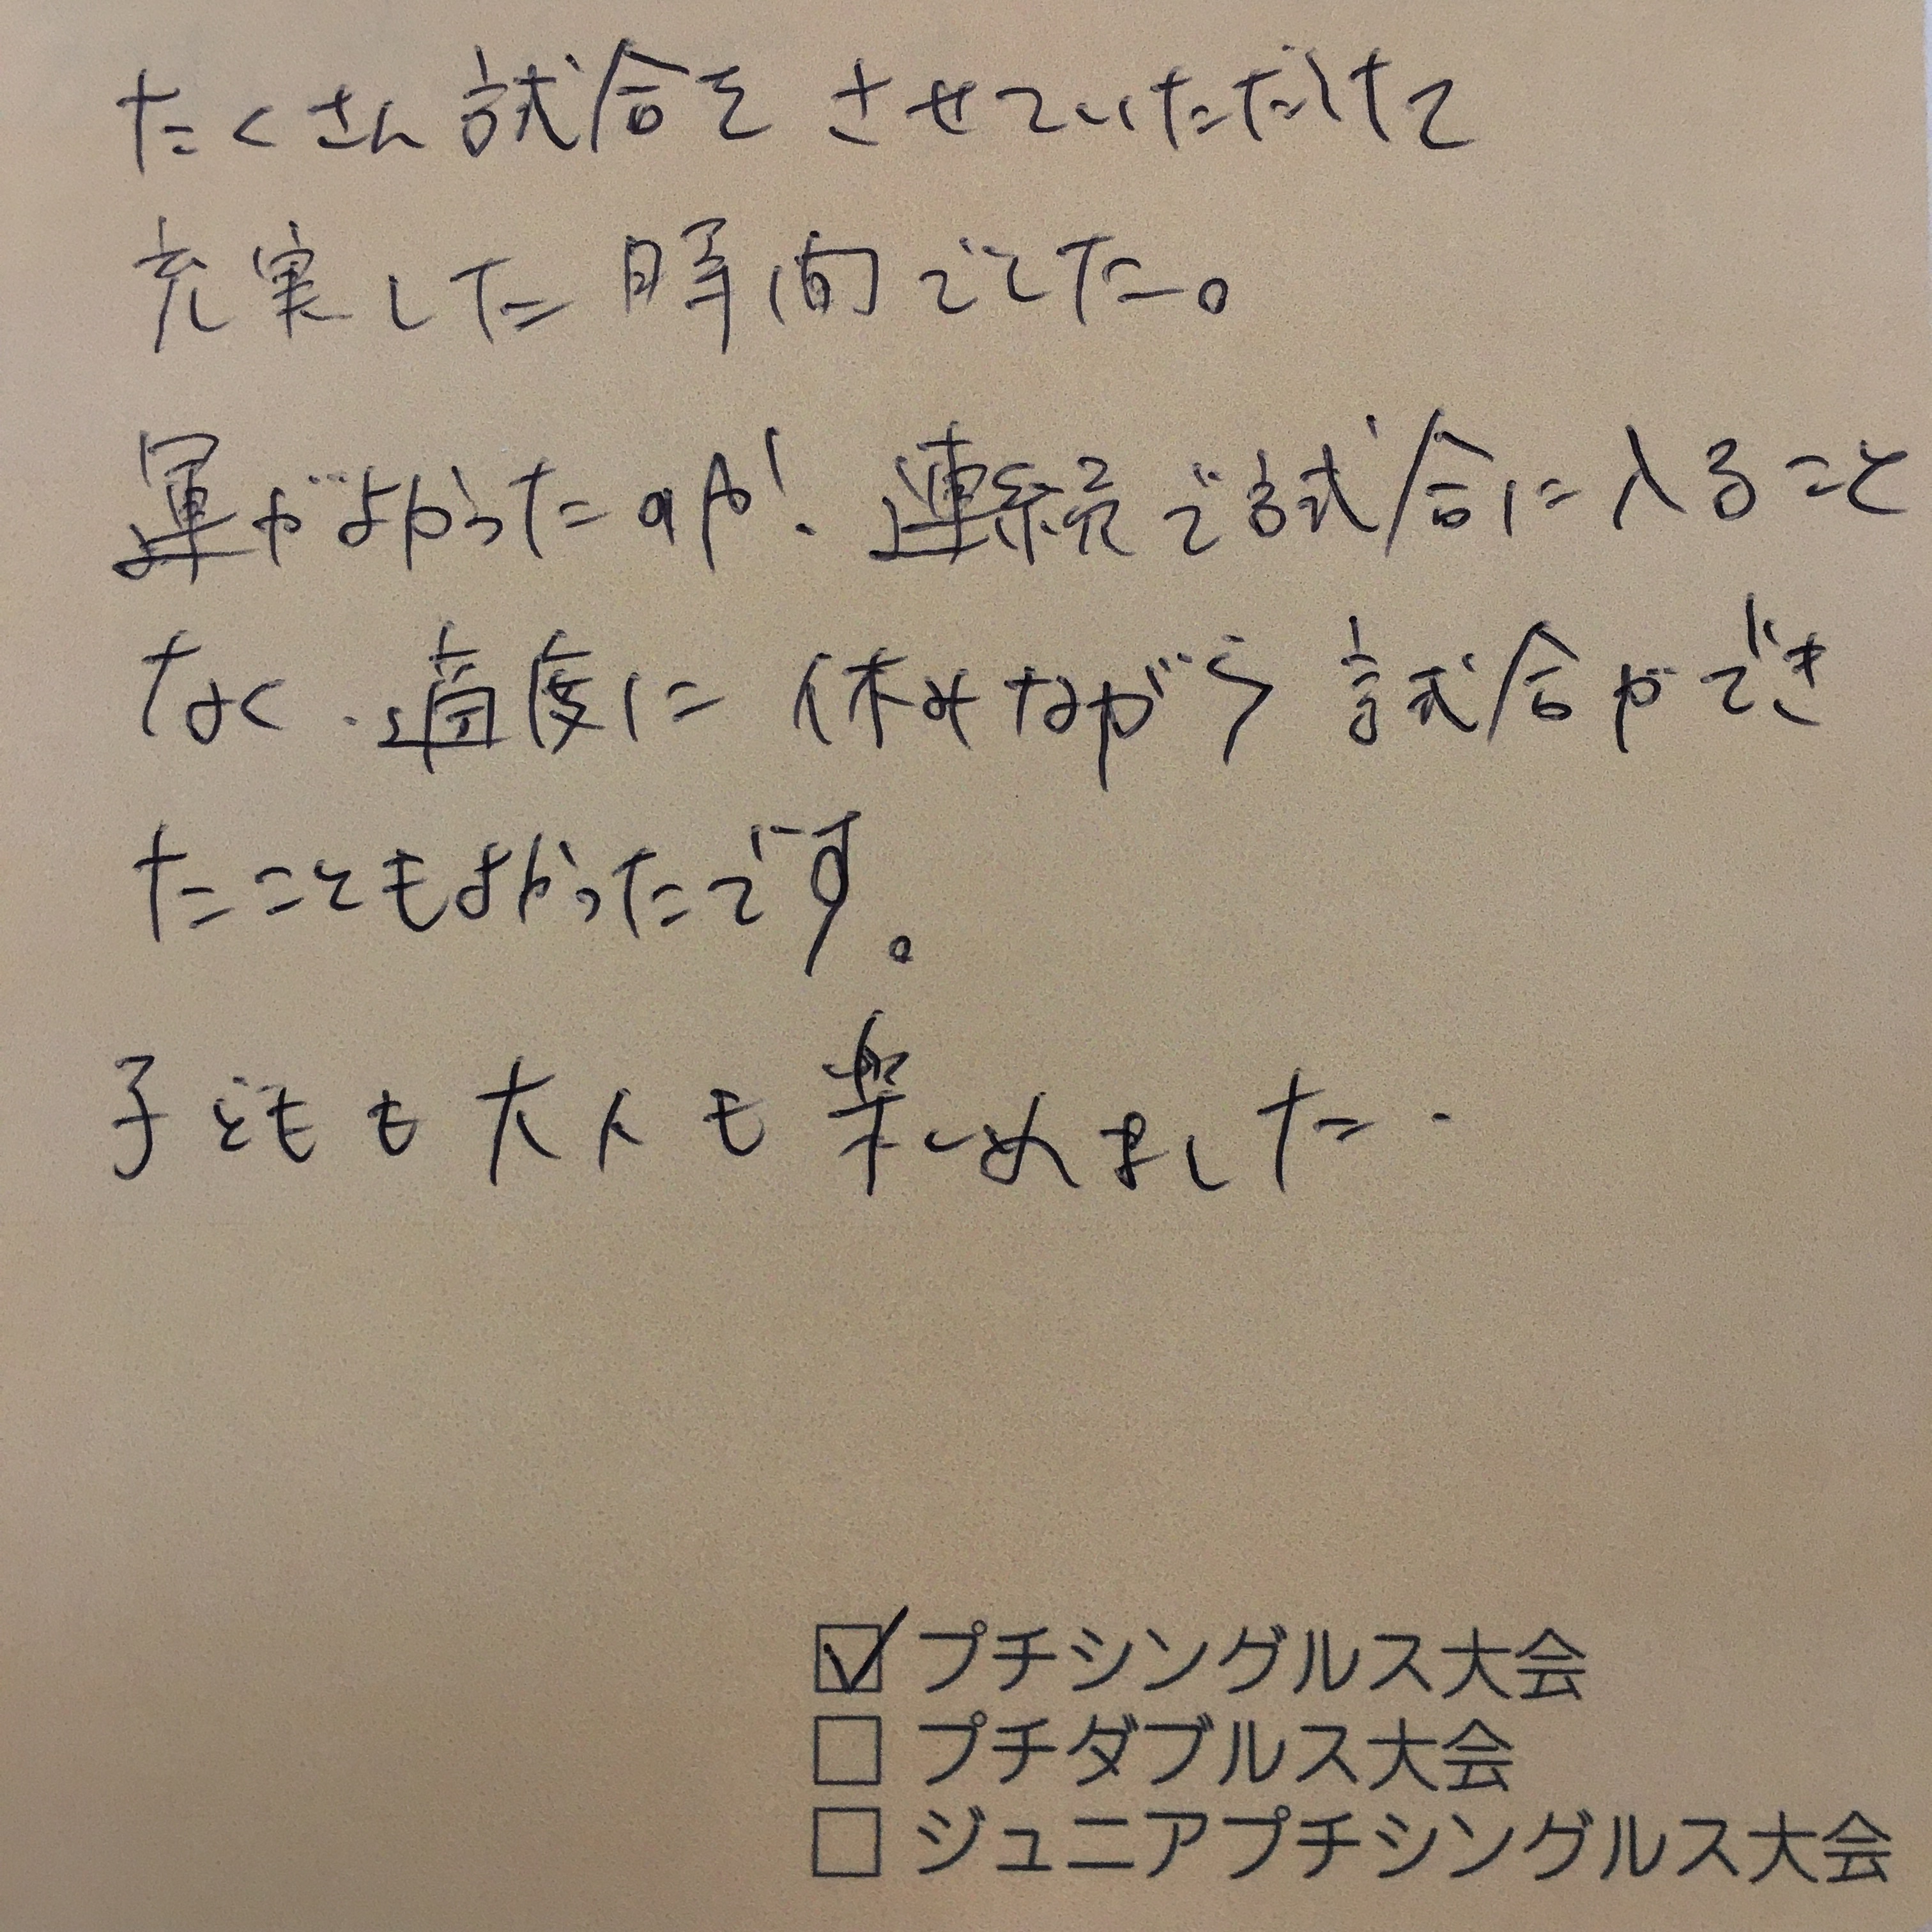 たくさん試合をさせていただけて
充実した時間でした。
運がよかったのか、連続で試合に入ること
なく、適度に休みながら試合ができ
たこともよかったです。
子どもも大人も楽しめました.
☑プチシングルス大会
□プチダブルス大会
□ジュニアプチシングルス大会